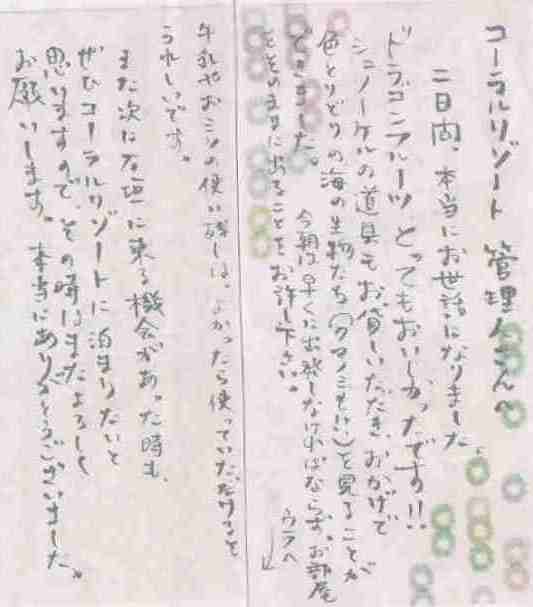 コーラルリゾート 管理人さんへ
二日間、本当にお世話になりました。
ドラゴンフルーツ、とってもおいしかったです!!
シュノーケルの道具もお貸しいただき、おかげで
色とりどりの海の生物たち(クマノミも!!)を見ることが
できました。 今朝は早くに出発しなければならず、お部屋
をそのままに出ることをお許し下さい。
ウラへ
牛乳やおミソの使い残しは、よかったら使っていただけると
うれしいです。
また次に石垣に来る機会があった時も、
ぜひコーラルリゾートに泊まりたいと
思いますので、その時はまたよろしく
お願いします。本当にありがとうございました。